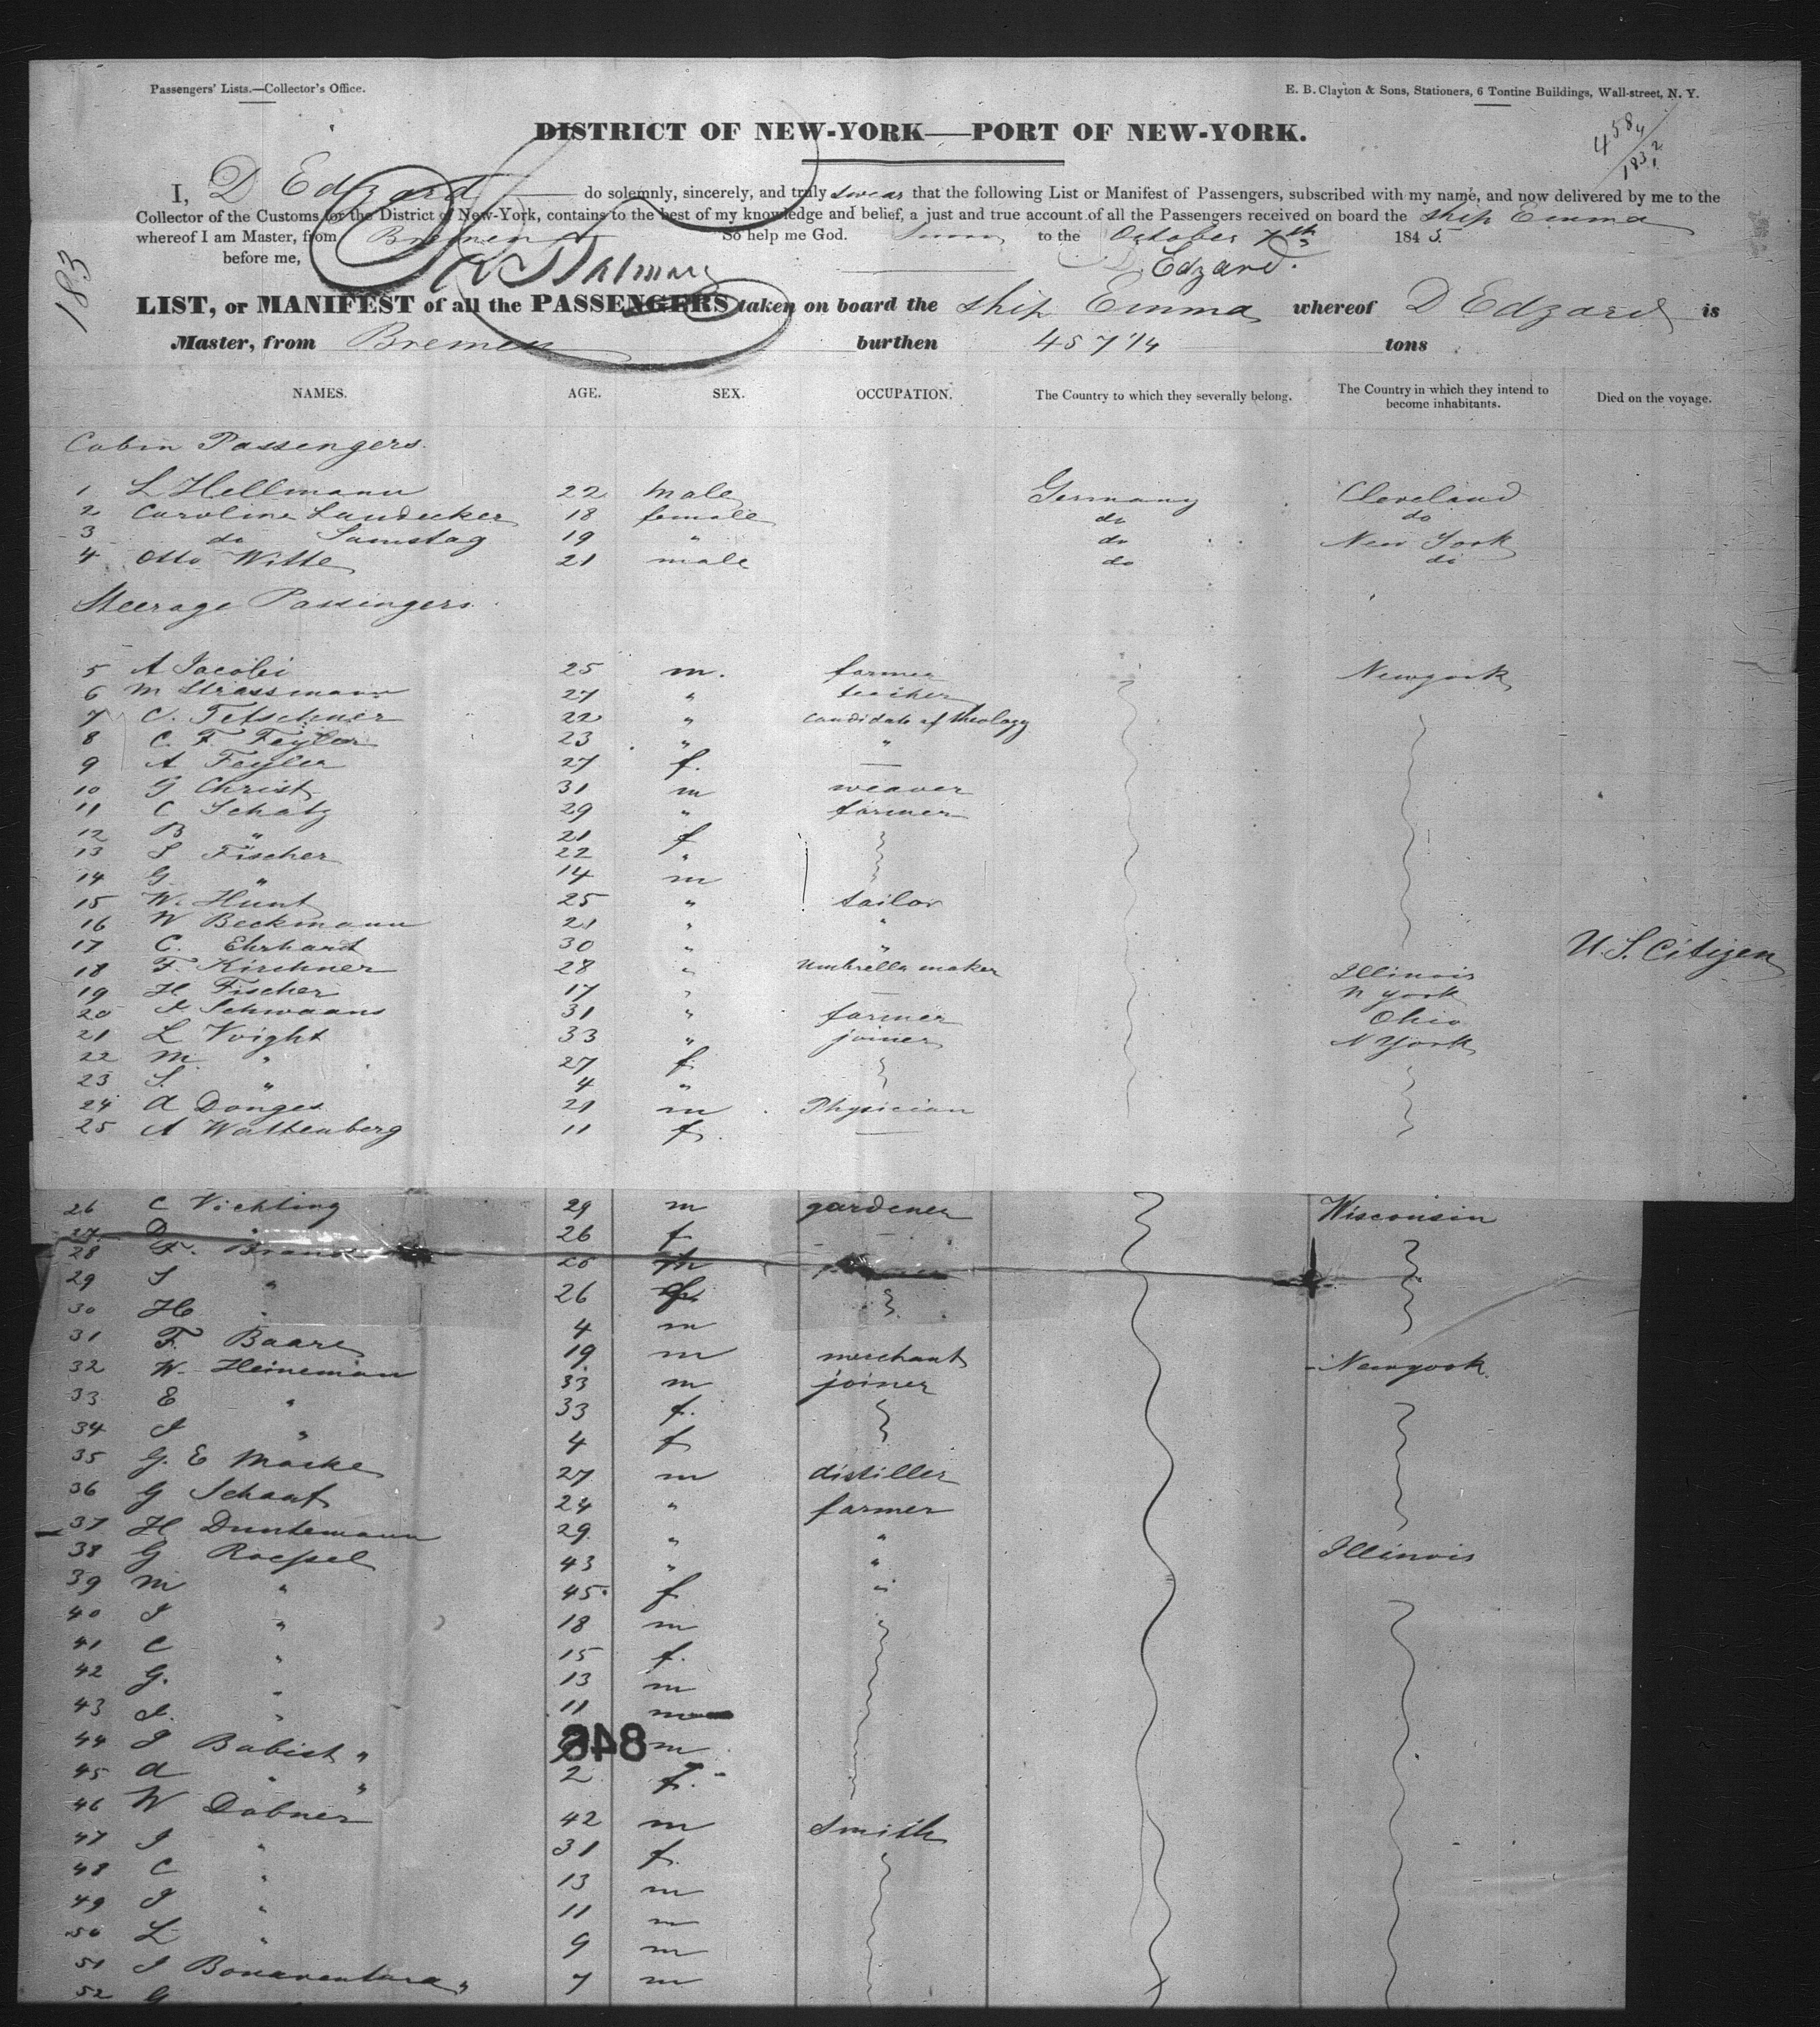 Passengers' Lists.—Collector's Office.
E. B. Clayton & Sons, Stationers, 6 Tontine Buildings, Wall-street, N. Y.
DISTRICT OF NEW-YORK—PORT OF NEW-YORK.
183
I, D Edzard do solemnly, sincerely, and truly swear that the following List or Manifest of Passengers, subscribed with my name, and now delivered by me to the
Collector of the Customs for the District of New-York, contains to the best of my knowledge and belief, a just and true account of all the Passengers received on board the ship Emma
whereof I am Master, from Bremen So help me God. to the October 7th 1845.
before me, D Edzard.
LIST, or MANIFEST of all the PASSENGERS taken on board the ship Emma whereof D Edzard is
Master, from Bremen burthen 457 1/4 tons
NAMES. AGE. SEX. OCCUPATION. The Country to which they severally belong. The Country in which they intend to become inhabitants. Died on the voyage.
Cabin Passengers.
1 L Hellmann 22 male Germany Cleveland
2 Caroline Landecker 18 female do do
3 do Samstag 19 " do New York
4 Otto Witte 21 male do do
Steerage Passingers.
5 A Jacobi 25 m. farmer Newyork
6 M Strassmann 27 " teacher
7 C. Tetschner 22 " candidate of theology
8 C. F. Feyler 23 " "
9 A Feyler 27 f. —
10 G Christ 31 m weaver
11 C Schatz 29 " farmer
12 B " 21 f
13 S Fischer 22 "
14 G " 14 m
15 W. Hunt 25 " tailor
16 W Beckmann 21 " "
17 C. Ehrhardt 30 " " U. S. Citizen
18 F. Kirchner 28 " Umbrella maker Illinois
19 H Fischer 17 " — N York
20 J Schwaans 31 " farmer Ohio
21 L Voight 33 " joiner N York
22 M " 27 f
23 S. " 4 "
24 A Donges 21 m Physician
25 A Wattenberg 11 f. —
26 C Vichting 29 m gardener Wisconsin
27 D " 26 f —
28 F. 26 m
29 S " 26 f
30 H " 4 m
31 F. Baare 19 m merchant Newyork
32 W. Heineman 33 m joiner
33 E " 33 f.
34 J " 4 f
35 G. E Macke 27 m distiller
36 G Schaaf 24 " farmer
37 H Duntemann 29 " "
38 G Roessel 43 " " Illinois
39 M " 45 f "
40 J " 18 m
41 C " 15 f.
42 G. " 13 m
43 J. " 11 m
44 J Babist " m
846
45 A " " 2 f.
46 W Dabner 42 m Smith
47 J " 31 f.
48 C " 13 m
49 J " 11 m
50 L " 9 m
51 J Bonaventura " 7 m
52 G